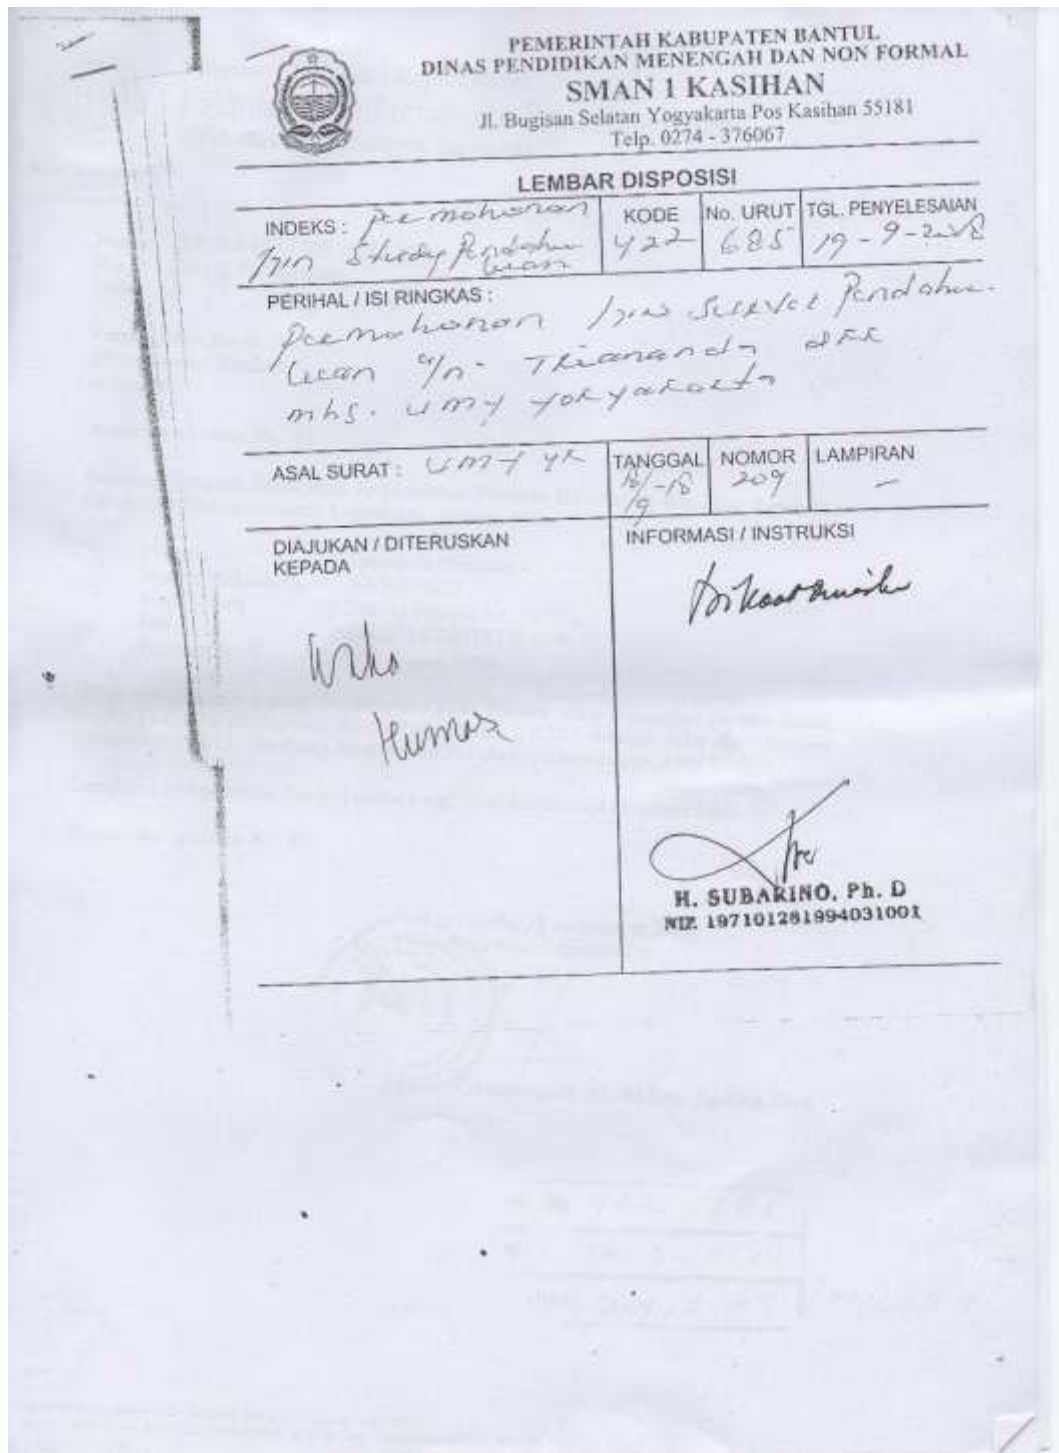 PEMERINTAH KABUPATEN BANTUL
DINAS PENDIDIKAN MENENGAH DAN NON FORMAL
SMAN 1 KASIHAN
Jl. Bugisan Selatan Yogyakarta Pos Kasihan 55181
Telp. 0274 - 376067
LEMBAR DISPOSISI
INDEKS : Permohonan
Izin Study Pendahu
luan
KODE
422
No. URUT
685
TGL. PENYELESAIAN
19 - 9 - 2018
PERIHAL / ISI RINGKAS :
Permohonan Izin Survei Pendahu-
luan a/n. Triananda dkk
mhs. UMY Yogyakarta
ASAL SURAT : UMY YK
TANGGAL
18/9 -18
NOMOR
209
LAMPIRAN
-
DIAJUKAN / DITERUSKAN
KEPADA
Humas
INFORMASI / INSTRUKSI
H. SUBARINO, Ph. D
NIP. 197101281994031001